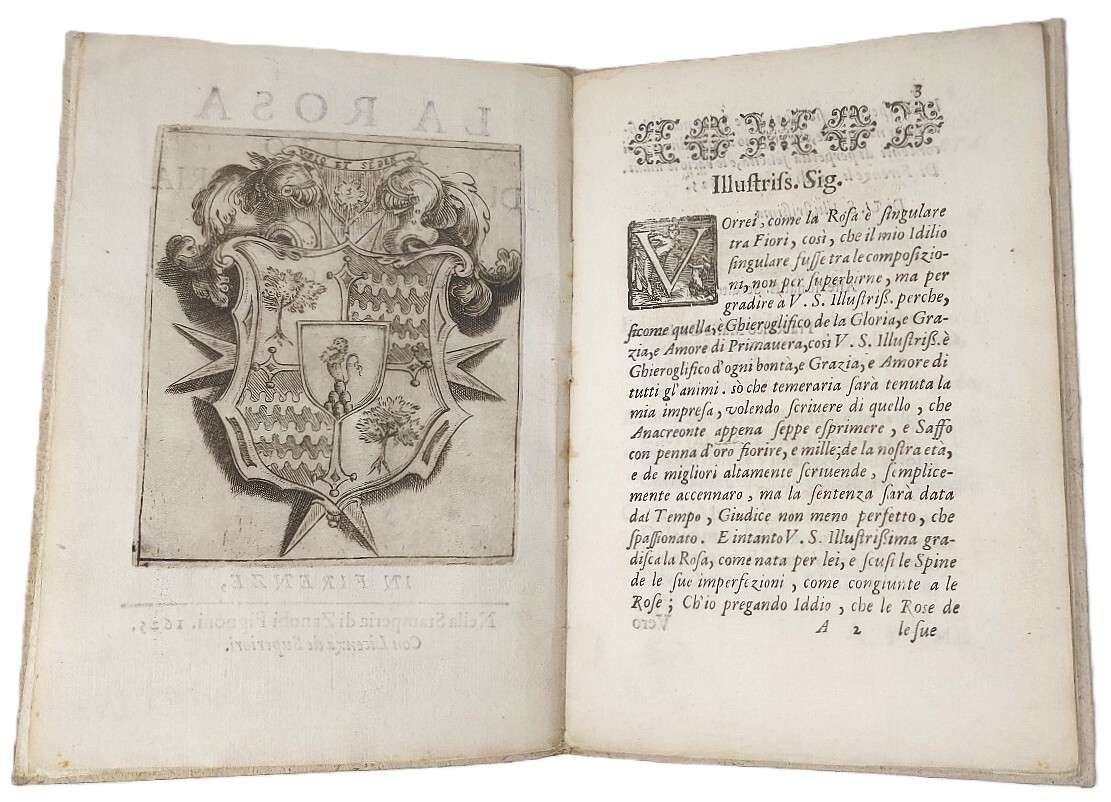 LA ROSA
ET SEDER
IN FIRENZE,
Nella Stamperia di Zanobi Pignoni. 1625.
Con Licenza de Superiori.
3
Illuſtriſs. Sig.
VOrrei, come la Roſa è ſingulare
tra Fiori, così, che il mio Idilio
ſingulare fuſſe tra le compoſizio-
ni, non per ſuperbirne, ma per
gradire à V. S. Illuſtriß. perche,
ſicome quella, è Ghieroglifico de la Gloria, e Gra-
zia, e Amore di Primauera, così V. S. Illuſtriß. è
Ghieroglifico d'ogni bontà, e Grazia, e Amore di
tutti gl'animi. sò che temeraria ſarà tenuta la
mia impreſa, volendo ſcriuere di quello, che
Anacreonte appena ſeppe eſprimere, e Saffo
con penna d'oro fiorire, e mille; de la noſtra età,
e de migliori altamente ſcriuende, ſemplice-
mente accennaro, ma la ſentenza ſarà data
dal Tempo, Giudice non meno perfetto, che
ſpaſſionato. E intanto V. S. Illuſtrißima gra-
diſca la Roſa, come nata per lei, e ſcuſi le Spine
de le ſue imperfezioni, come congiunte a le
Roſe; Ch'io pregando Iddio, che le Roſe de
A 2 le ſue
Vero